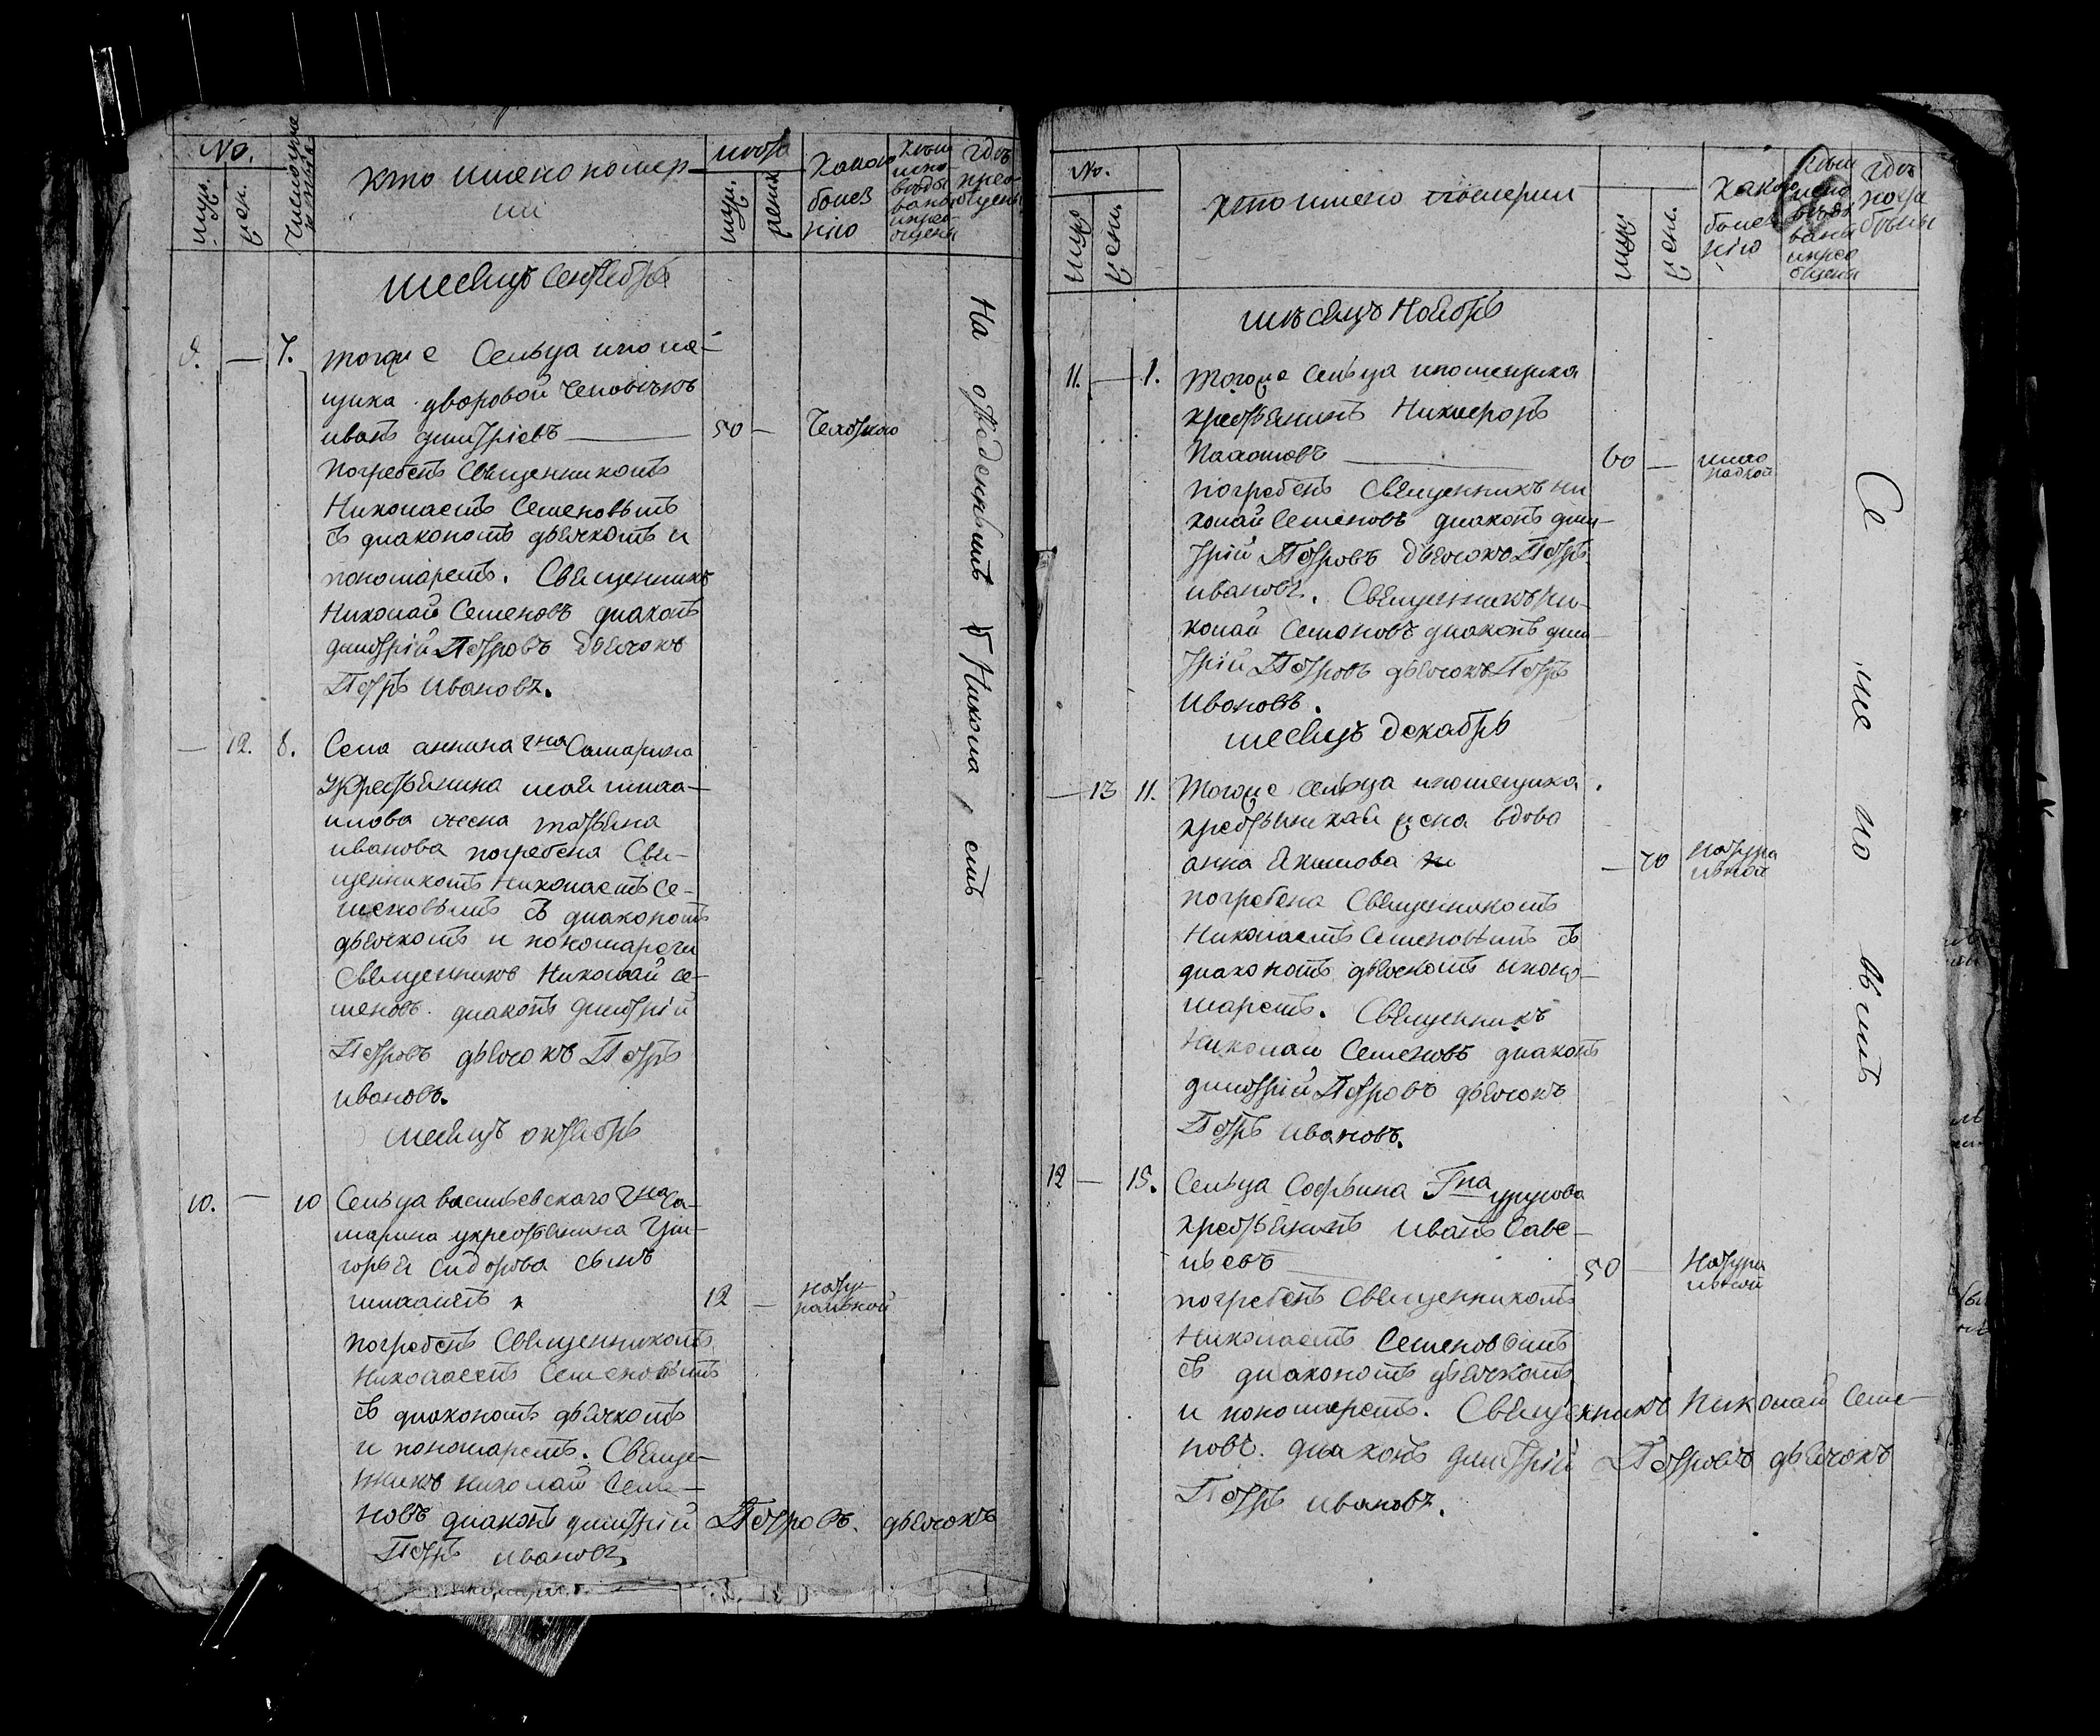 No.
муж.
жен.
кто имено помер-
ли
лѣта
муж.
женск
Какою
болез
нiю
Кем
испо
веды
ваны
и прео
бщены
гдѣ
месецъ Сентебря
9. — 7. тогоже Сельца и пома-
щика дворовой человѣкъ
иванъ димтрiевъ — 50 — Чехоткою
погребенъ Священникомъ
Николаемъ Семеновымъ
съ диакономъ дьячкомъ и
пономаремъ. Священникъ
Николай Семеновъ диаконъ
димтрiй Петровъ дьячокъ
Петръ ивановъ.
— 12. 8. Села аннина гна Самарина
укрестьянина
жена татьяна
иванова погребена Свя-
щенникомъ Николаемъ Се-
меновымъ съ диакономъ
дьячкомъ и пономаремъ
Священникъ Николай се-
меновъ диаконъ димтрiй
Петровъ дьячокъ Петръ
ивановъ.
месецъ октябрь
10. — 10 Сельца васильевскаго гна Са-
марина укрестьянина Гри-
горья Сидорова сынъ
михаилъ 12 — нату-
ральной
погребенъ Священникомъ
Николаемъ Семеновымъ
съ диакономъ дьячкомъ
и пономаремъ. Свяще-
нникъ николай Семе-
новъ диаконъ димтрiй Петровъ. дьячокъ
Петръ ивановъ
На отведенномъ
No.
муж
жен.
кто имено померли
муж.
жен.
Какою
болез
нiю
Кем
испо
веды
ваны
и прео
бщены
гдѣ
погре
бены
мѣсецъ Ноябрь
11. — 1. Тогоже Сельца и помещика
крестьянинъ Никифоръ
Пахомовъ — 60 — лихо
радкой
погребенъ Священникъ ни
колай Семеновъ диаконъ дим-
трiй Петровъ дьячокъ Петръ
ивановъ. Священникъ ни-
колай Семеновъ диаконъ дим-
трiй Петровъ дьячокъ Петръ
Ивановъ.
месецъ декабрь
— 13 11. Тогоже сельца и помещика
крестьянская жена вдова
анна Якимова — 70 натура
льной
погребена Священникомъ
Николаемъ Семеновымъ съ
диакономъ дьячкомъ и поно-
маремъ. Священникъ
Николай Семеновъ диаконъ
димтрiй Петровъ дьячокъ
Петръ ивановъ.
12 — 15. Сельца Софьина Гна
крестьянинъ Иванъ Саве-
льевъ 50 — Натура
льной
погребенъ Священникомъ
Николаемъ Семеновымъ
съ диакономъ дьячкомъ
и пономаремъ. Священникъ Николай Семе-
новъ. диаконъ димтрiй Петровъ дьячокъ
Петръ ивановъ.